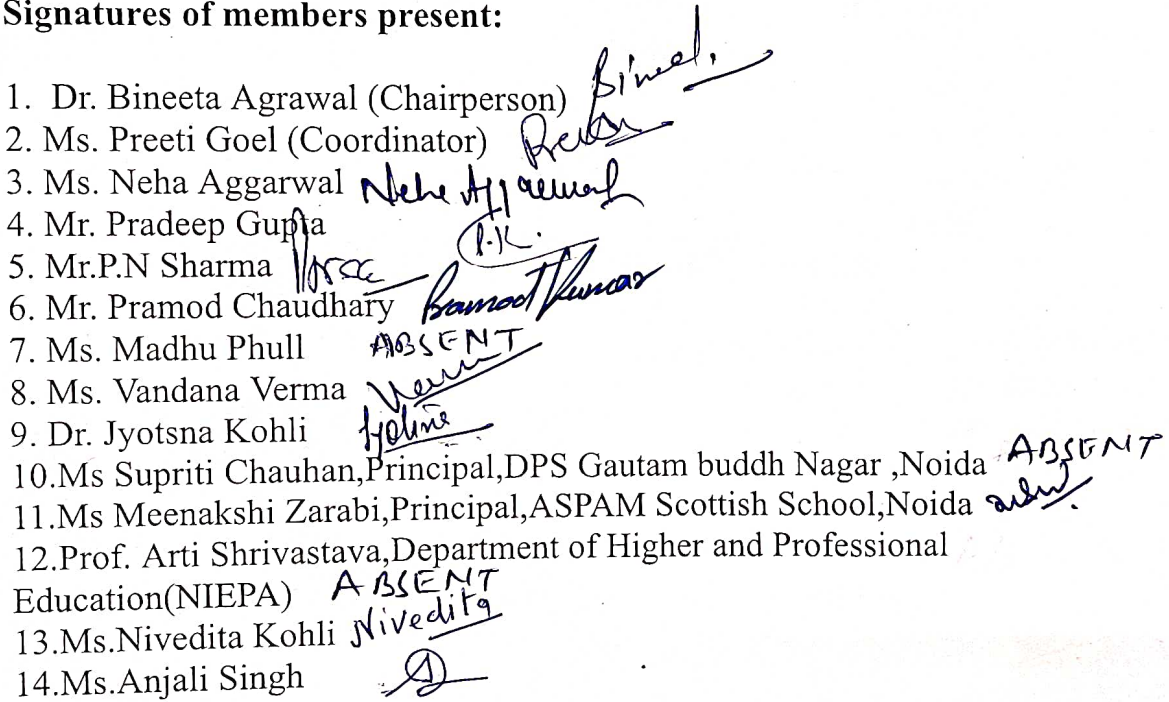 Signatures of members present:
1. Dr. Bineeta Agrawal (Chairperson)
2. Ms. Preeti Goel (Coordinator)
3. Ms. Neha Aggarwal Neha Aggarwal
4. Mr. Pradeep Gupta P.K.
5. Mr.P.N Sharma
6. Mr. Pramod Chaudhary Pramod Kumar
7. Ms. Madhu Phull ABSENT
8. Ms. Vandana Verma
9. Dr. Jyotsna Kohli
10.Ms Supriti Chauhan,Principal,DPS Gautam buddh Nagar ,Noida ABSENT
11.Ms Meenakshi Zarabi,Principal,ASPAM Scottish School,Noida
12.Prof. Arti Shrivastava,Department of Higher and Professional
Education(NIEPA) ABSENT
13.Ms.Nivedita Kohli Nivedita
14.Ms.Anjali Singh